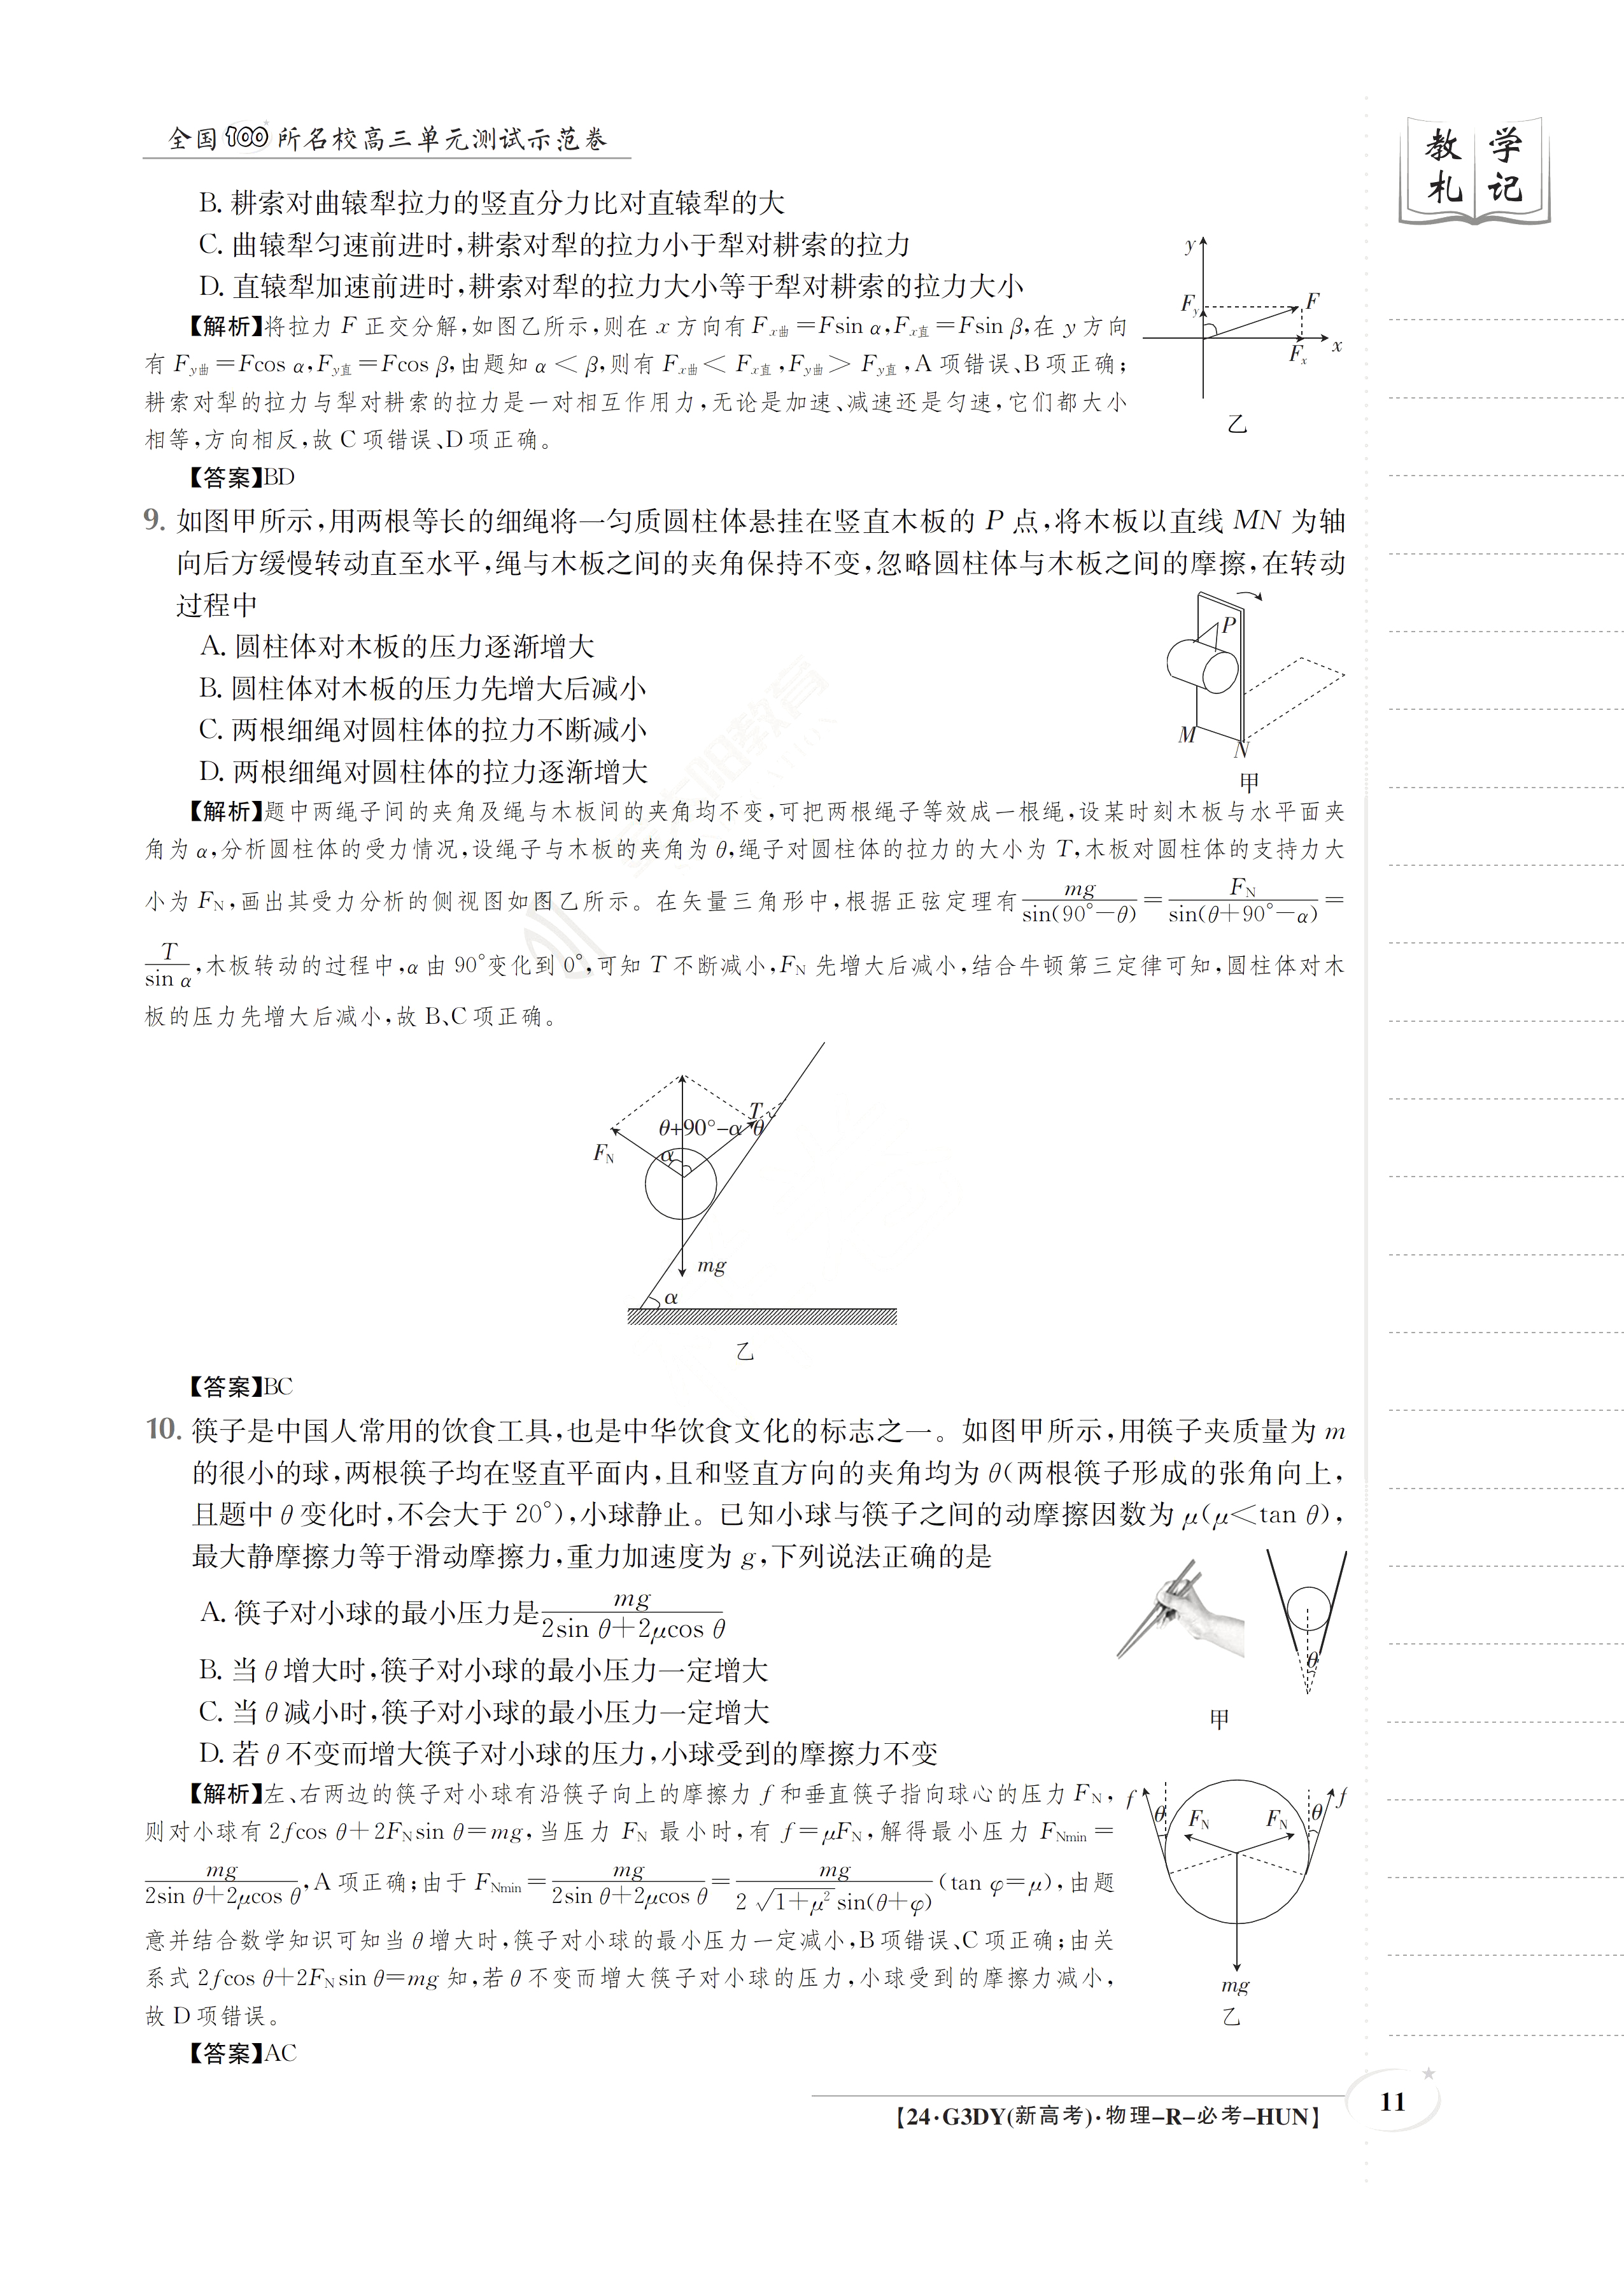 全国100所名校高三单元测试示范卷
教学札记
B. 耕索对曲辕犁拉力的竖直分力比对直辕犁的大
C. 曲辕犁匀速前进时,耕索对犁的拉力小于犁对耕索的拉力
D. 直辕犁加速前进时,耕索对犁的拉力大小等于犁对耕索的拉力大小
【解析】将拉力 F 正交分解,如图乙所示,则在 x 方向有 Fx曲=Fsin α,Fx直=Fsin β,在 y 方向
有 Fy曲=Fcos α,Fy直=Fcos β,由题知 α < β,则有 Fx曲< Fx直,Fy曲> Fy直,A 项错误、B 项正确;
耕索对犁的拉力与犁对耕索的拉力是一对相互作用力,无论是加速、减速还是匀速,它们都大小
相等,方向相反,故 C 项错误、D 项正确。
y
Fy
F
Fx
x
乙
【答案】BD
9. 如图甲所示,用两根等长的细绳将一匀质圆柱体悬挂在竖直木板的 P 点,将木板以直线 MN 为轴
向后方缓慢转动直至水平,绳与木板之间的夹角保持不变,忽略圆柱体与木板之间的摩擦,在转动
过程中
A. 圆柱体对木板的压力逐渐增大
B. 圆柱体对木板的压力先增大后减小
C. 两根细绳对圆柱体的拉力不断减小
D. 两根细绳对圆柱体的拉力逐渐增大
P
M
N
甲
【解析】题中两绳子间的夹角及绳与木板间的夹角均不变,可把两根绳子等效成一根绳,设某时刻木板与水平面夹
角为 α,分析圆柱体的受力情况,设绳子与木板的夹角为 θ,绳子对圆柱体的拉力的大小为 T,木板对圆柱体的支持力大
小为 FN,画出其受力分析的侧视图如图乙所示。在矢量三角形中,根据正弦定理有 mg/sin(90°−θ) = FN/sin(θ+90°−α) =
T/sin α,木板转动的过程中,α 由 90°变化到 0°,可知 T 不断减小,FN 先增大后减小,结合牛顿第三定律可知,圆柱体对木
板的压力先增大后减小,故 B、C 项正确。
T
θ+90°−α θ
FN
α
mg
α
乙
【答案】BC
10. 筷子是中国人常用的饮食工具,也是中华饮食文化的标志之一。如图甲所示,用筷子夹质量为 m
的很小的球,两根筷子均在竖直平面内,且和竖直方向的夹角均为 θ(两根筷子形成的张角向上,
且题中 θ 变化时,不会大于 20°),小球静止。已知小球与筷子之间的动摩擦因数为 μ(μ<tan θ),
最大静摩擦力等于滑动摩擦力,重力加速度为 g,下列说法正确的是
A. 筷子对小球的最小压力是 mg/(2sin θ+2μcos θ)
B. 当 θ 增大时,筷子对小球的最小压力一定增大
C. 当 θ 减小时,筷子对小球的最小压力一定增大
D. 若 θ 不变而增大筷子对小球的压力,小球受到的摩擦力不变
θ
甲
【解析】左、右两边的筷子对小球有沿筷子向上的摩擦力 f 和垂直筷子指向球心的压力 FN,
则对小球有 2fcos θ+2FNsin θ=mg,当压力 FN 最小时,有 f=μFN,解得最小压力 FNmin=
mg/(2sin θ+2μcos θ),A 项正确;由于 FNmin= mg/(2sin θ+2μcos θ) = mg/(2√(1+μ²) sin(θ+φ)) (tan φ=μ),由题
意并结合数学知识可知当 θ 增大时,筷子对小球的最小压力一定减小,B 项错误、C 项正确;由关
系式 2fcos θ+2FNsin θ=mg 知,若 θ 不变而增大筷子对小球的压力,小球受到的摩擦力减小,
故 D 项错误。
f θ FN FN θ f
mg
乙
【答案】AC
【24·G3DY(新高考)·物理-R-必考-HUN】
11